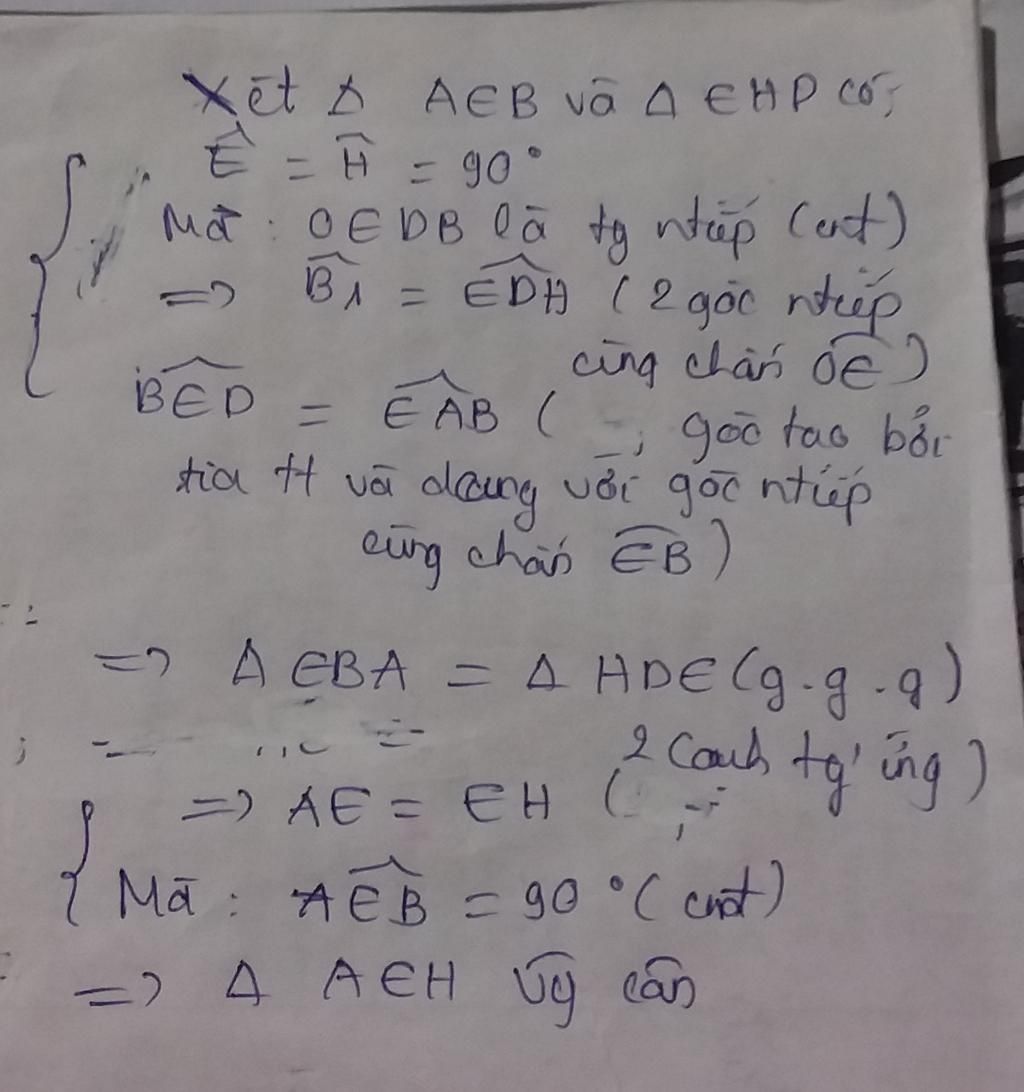 Xét Δ AEB và Δ EHD có;
Ê = Ĥ = 90°
Mà : OEDB là tg ntiếp (cmt)
=> B̂₁ = EDH ( 2 góc ntiếp
cùng chắn OE )
BED = EAB ( góc tạo bởi
tia tt và dcung với góc ntiếp
cùng chắn EB )
=> Δ EBA = Δ HDE (g.g.g)
2 cạnh tg' ứng )
=> AE = EH (
Mà : AEB = 90° ( cmt )
=> Δ AEH vg cân